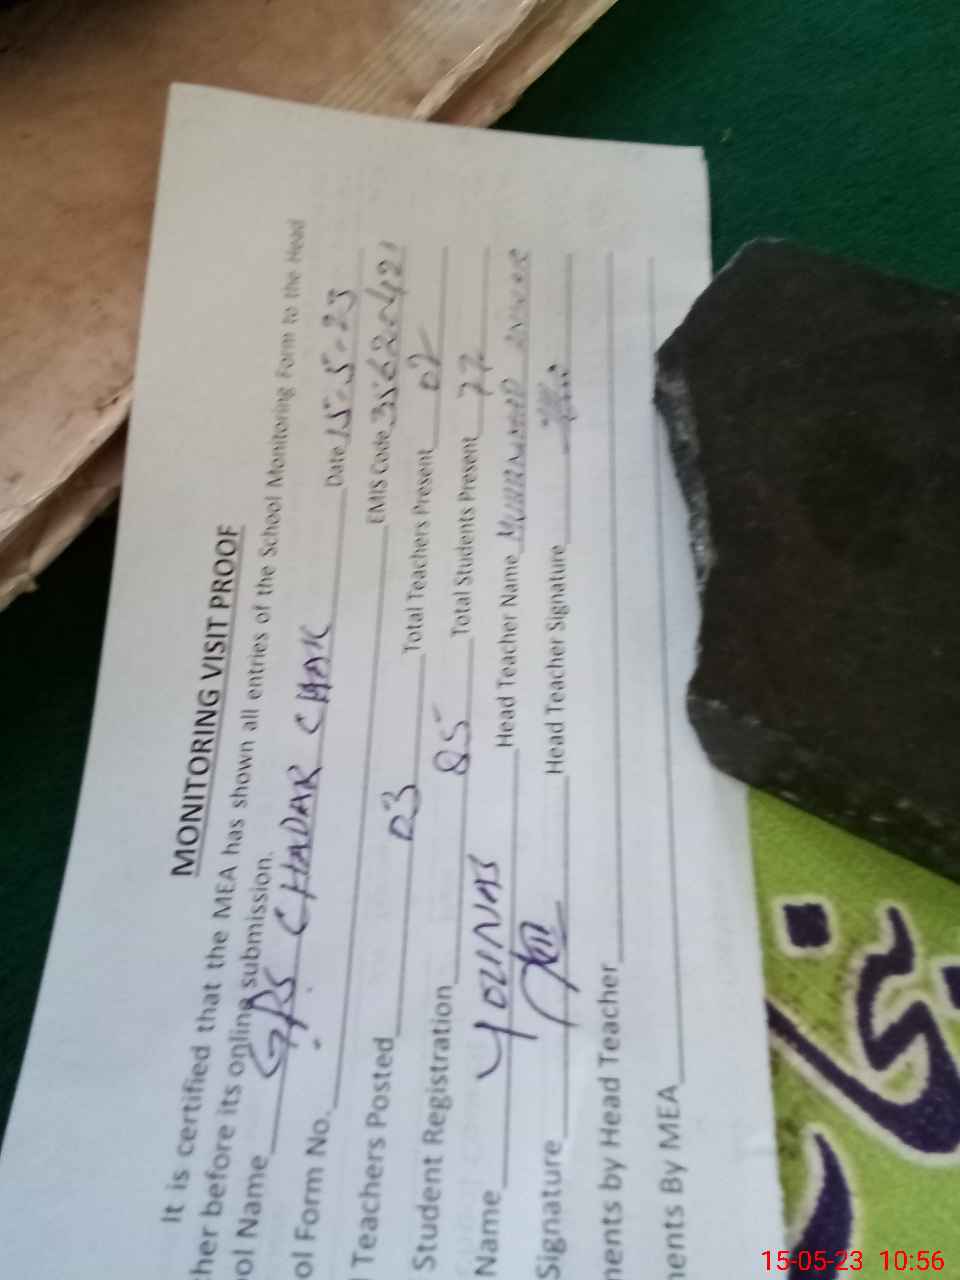 MONITORING VISIT PROOF
It is certified that the MEA has shown all entries of the School Monitoring Form to the Head
her before its online submission.
ol Name GPS CHADAR CHAK
ol Form No. Date 15-5-23
Teachers Posted 03 EMIS Code 35620421
Total Teachers Present 02
Student Registration 85 Total Students Present 77
Name YOUNAS Head Teacher Name MUHAMMAD
Signature Head Teacher Signature
ments by Head Teacher
ments By MEA
15-05-23 10:56